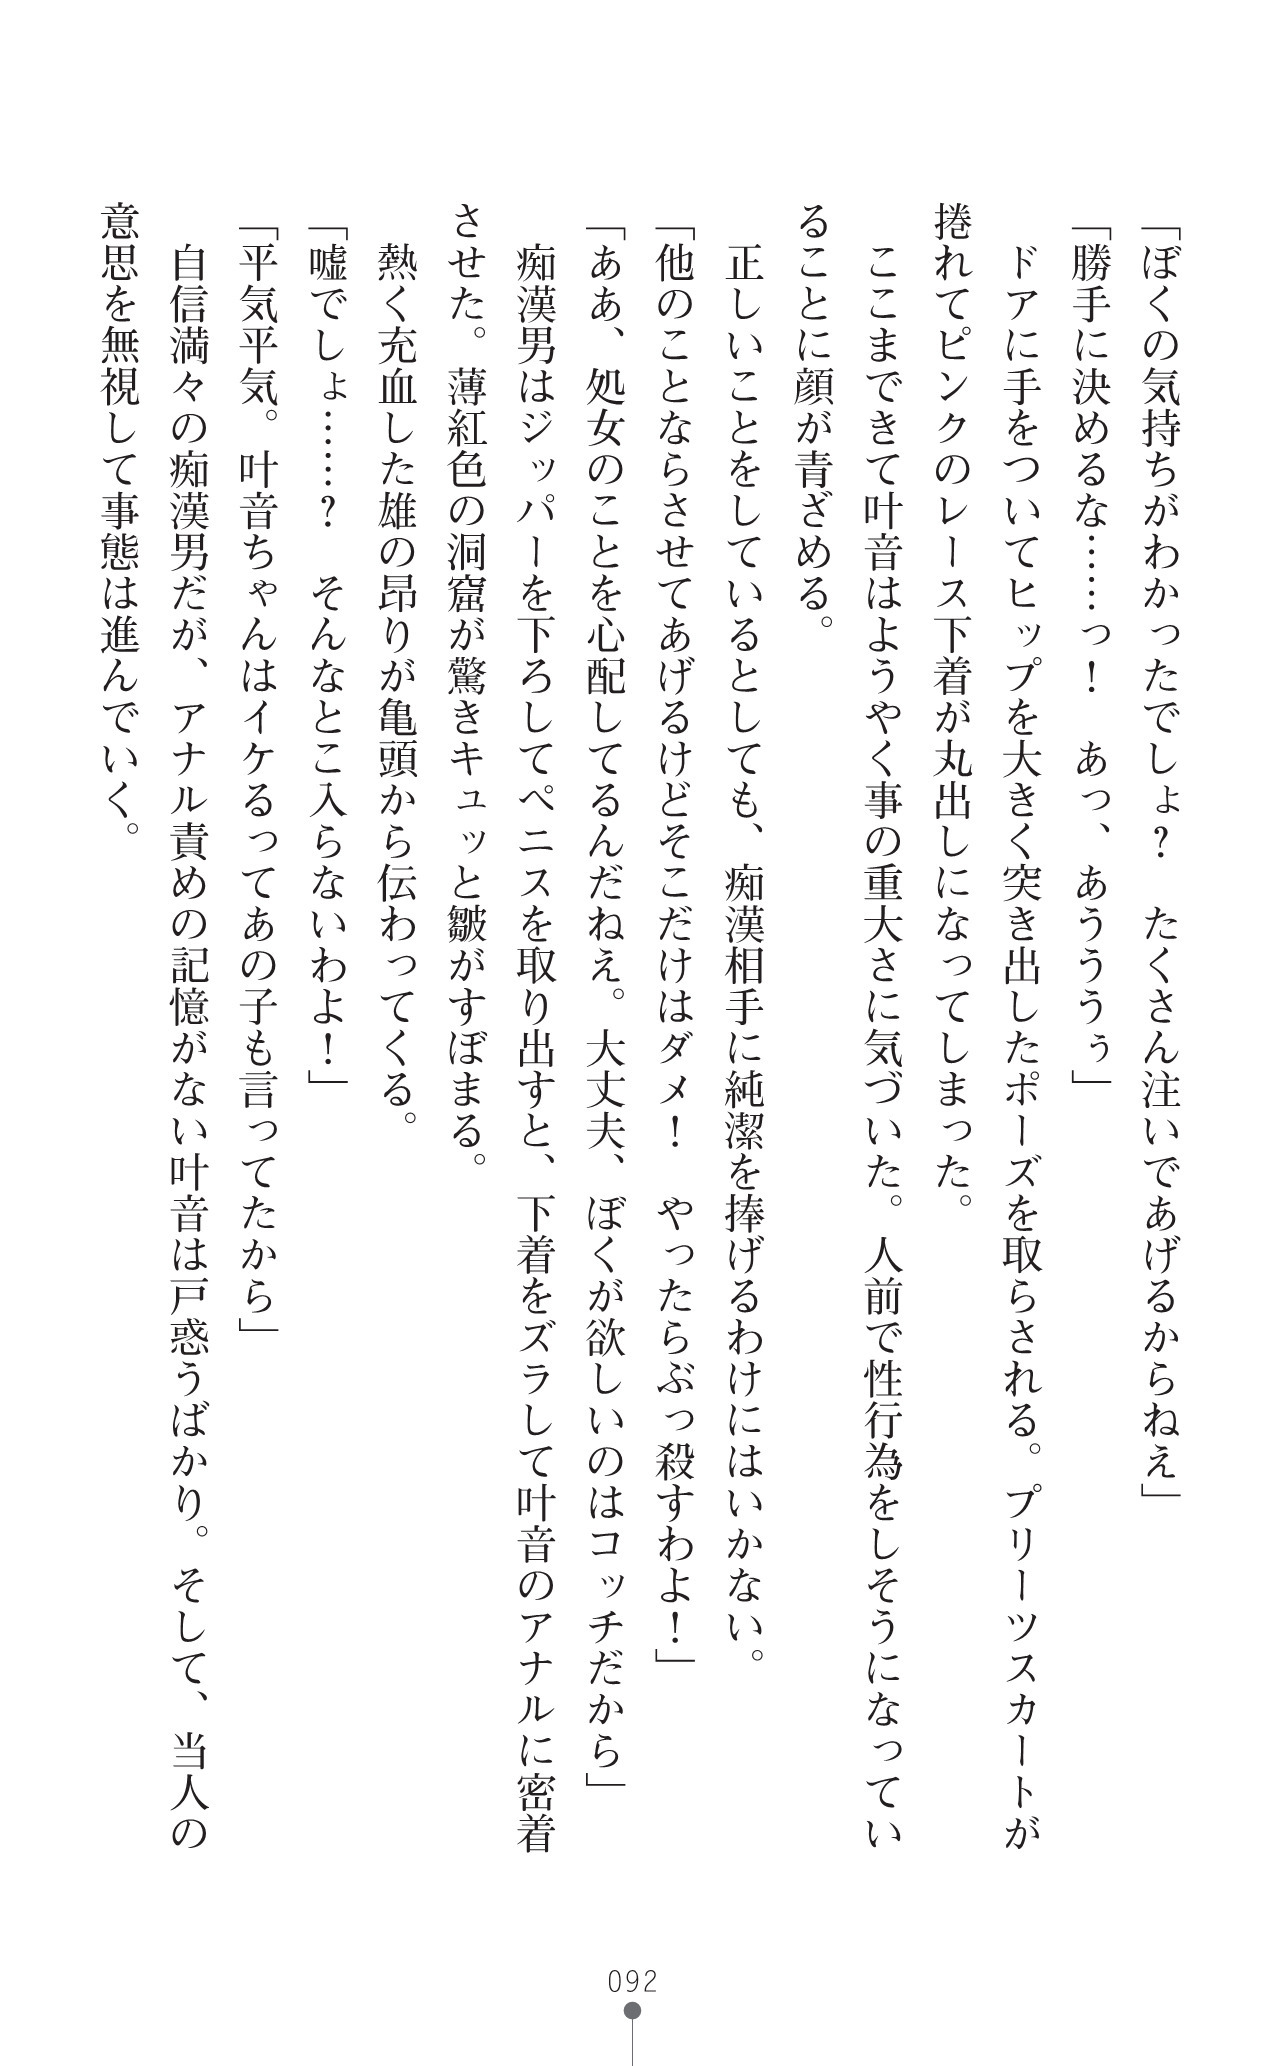 「ぼくの気持ちがわかったでしょ？　たくさん注いであげるからねぇ」
「勝手に決めるな……っ！　あっ、あうううぅ」
　ドアに手をついてヒップを大きく突き出したポーズを取らされる。プリーツスカートが
捲れてピンクのレース下着が丸出しになってしまった。
　ここまできて叶音はようやく事の重大さに気づいた。人前で性行為をしそうになってい
ることに顔が青ざめる。
　正しいことをしているとしても、痴漢相手に純潔を捧げるわけにはいかない。
「他のことならさせてあげるけどそこだけはダメ！　やったらぶっ殺すわよ！」
「ああ、処女のことを心配してるんだねぇ。大丈夫、ぼくが欲しいのはコッチだから」
　痴漢男はジッパーを下ろしてペニスを取り出すと、下着をズラして叶音のアナルに密着
させた。薄紅色の洞窟が驚きキュッと皺がすぼまる。
　熱く充血した雄の昂りが亀頭から伝わってくる。
「嘘でしょ……？　そんなとこ入らないわよ！」
「平気平気。叶音ちゃんはイケるってあの子も言ってたから」
　自信満々の痴漢男だが、アナル責めの記憶がない叶音は戸惑うばかり。そして、当人の
意思を無視して事態は進んでいく。
092